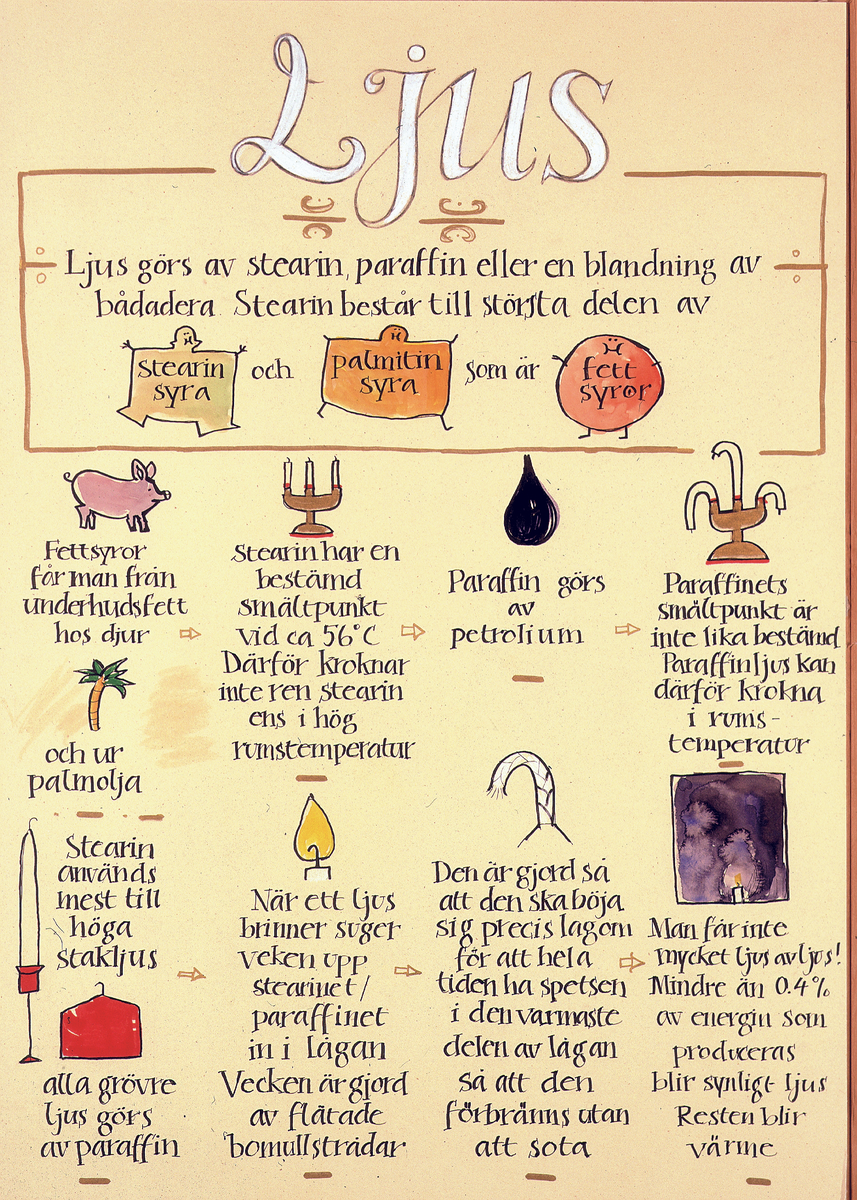 Ljus
Ljus görs av stearin, paraffin eller en blandning av
bådadera. Stearin består till största delen av
stearin
syra
och
palmitin
syra
som är
fett
syror
Fettsyror
får man från
underhudsfett
hos djur
och ur
palmolja
Stearin har en
bestämd
smältpunkt
vid ca 56°C
Därför kroknar
inte ren stearin
ens i hög
rumstemperatur
Paraffin görs
av
petrolium
Paraffinets
smältpunkt är
inte lika bestämd
Paraffinljus kan
därför krokna
i rums-
temperatur
Stearin
används
mest till
höga
stakljus
alla grövre
ljus görs
av paraffin
När ett ljus
brinner suger
veken upp
stearinet/
paraffinet
in i lågan
Vecken är gjord
av flätade
bomullstrådar
Den är gjord så
att den ska böja
sig precis lagom
för att hela
tiden ha spetsen
i den varmaste
delen av lågan
så att den
förbränns utan
att sota
Man får inte
mycket ljus av ljus!
Mindre än 0.4%
av energin som
produceras
blir synligt ljus
Resten blir
värme